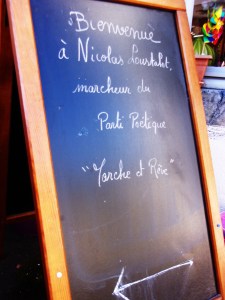 Bienvenue
à Nicolas Lourtalot,
marcheur du
Parti Poétique
"Marche et Rêve"